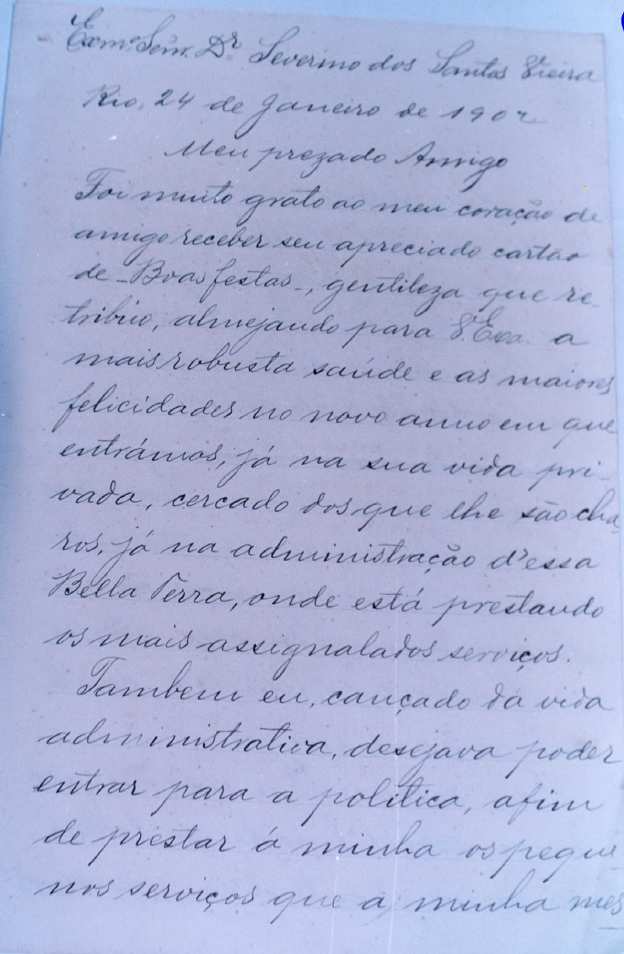 Exmo. Senr. Dr. Severino dos Santos Vieira
Rio, 24 de Janeiro de 1902
Meu prezado Amigo
Foi muito grato ao meu coração de
amigo receber seu apreciado cartão
de - Boas festas -, gentileza que re-
tribúo, almejando para V. Exa. a
mais robusta saúde e as maiores
felicidades no novo anno em que
entrámos, já na sua vida pri-
vada, cercado dos que lhe são cha-
ros, já na administração d'essa
Bella Terra, onde está prestando
os mais assignalados serviços.
Tambem eu, cançado da vida
administrativa, desejava poder
entrar para a politica, afim
de prestar á minha os peque-
nos serviços que a minha mes-